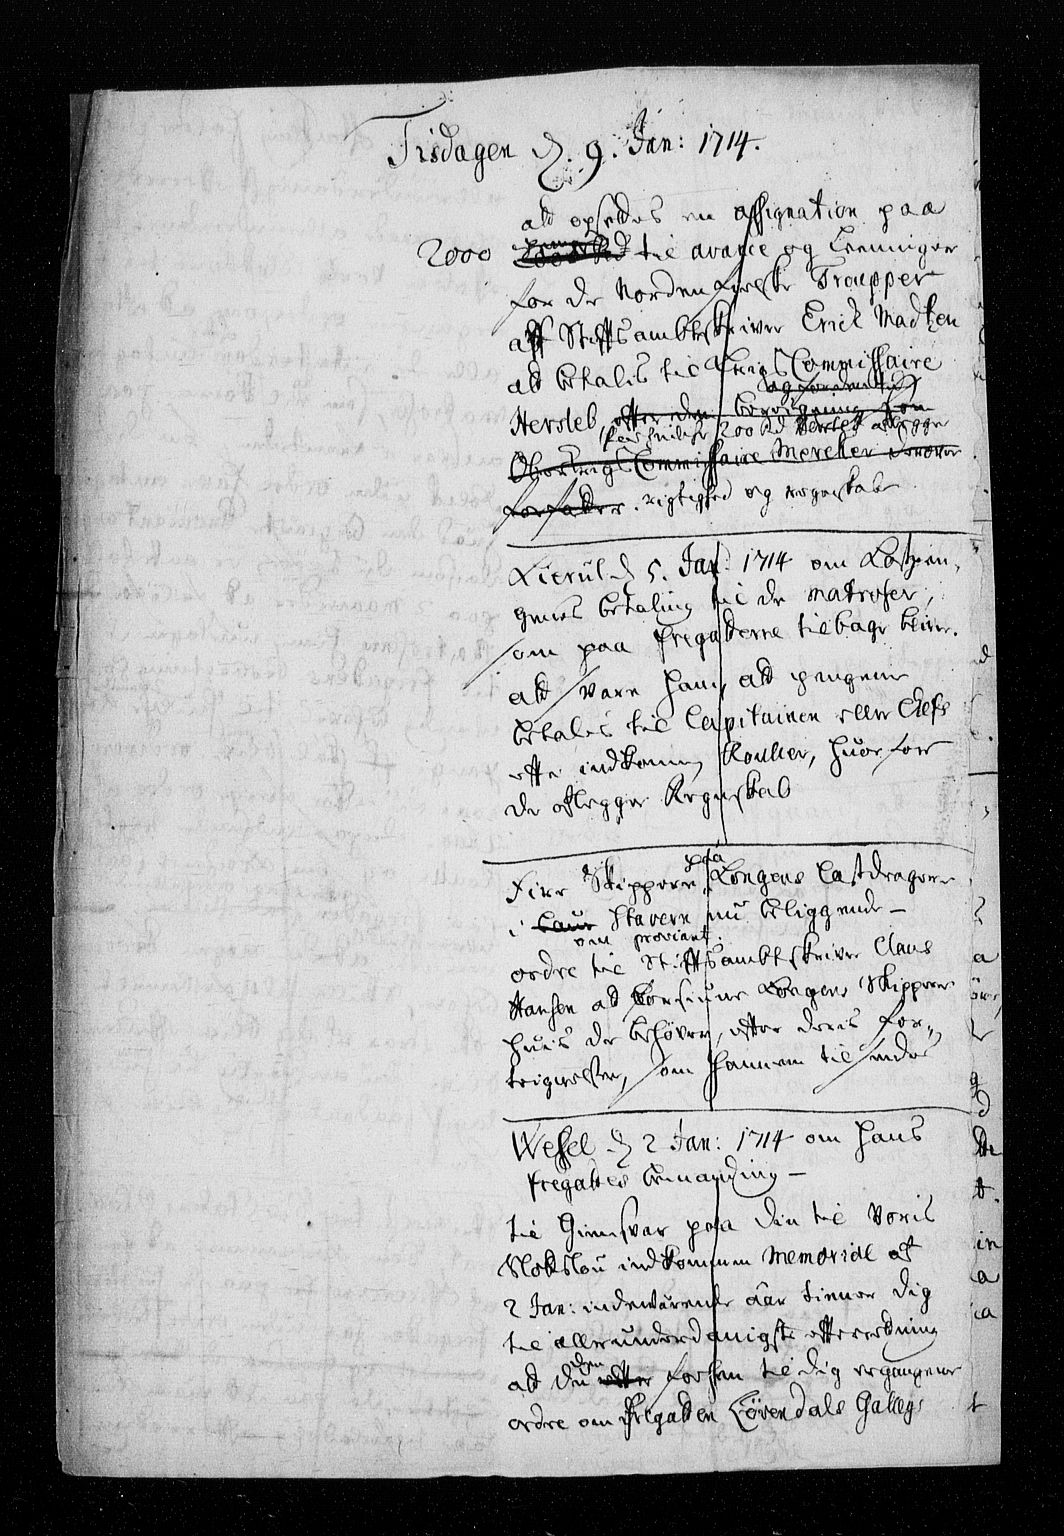 Tisdagen d. 9. Jan: 1714.
att opsettes en assignation paa
2000 til avance og
for de Nordenfieldske Troupper
aff Stifftsambtskriver Erick Madsen
att betales til Krigs Commissaire
Hersleb, efter den
200 Rd Hersleb aflegge
OberKrigsCommissaire Mercker
rigtighed og regenskab
Lierul d 5. Jan: 1714 om Kostpen-
genes betaling til de matroser,
som paa fregatterne tilbage bliver.
att svare ham, att pengene
betales til Capitainen eller Chefs
efter indkomne Rouller, huorfor
de aflegger Regenskab
Fire Skippere paa Kongens Lastdragere
i Staveren nu beliggende -
om proviant.
ordre til Stifftsambtskriver Claus
Hansen att forsiune Kongens Skippere
huis de behøver, efter deris for-
tegnelse, som hannem tilsendes
Wessel d 2 Jan: 1714 om hans
fregattes bemanding -
til Giensvar paa din til Voris
Slotzlou indkommen Memorial af
2 Jan: indeværende aar tiener dig
til allerunderdanigste efterretning
att du den forhen til dig ergangene
ordre om fregatten Løvendals Galleys